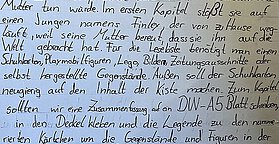 Mutter tun würde. Im ersten Kapitel stößt sie auf
einen Jungen namens Finley, der von zuhause weg-
läuft, weil seine Mutter bereut, dass sie auf die
Welt gebracht hat. Für die Lesekiste benötigt man einen
Schuhkarton, Playmobilfiguren, Lego, Bilder, Zeitungsausschnitte oder
selbst hergestellte Gegenstände. Außen soll der Schuhkarton
neugierig auf den Inhalt der Kiste machen. Zum Kapitel
sollten wir eine Zusammenfassung auf ein DIN-A5 Blatt schreiben,
in den Deckel kleben und die Legende zu den numme-
rierten Kärtchen um die Gegenstände und Figuren in der